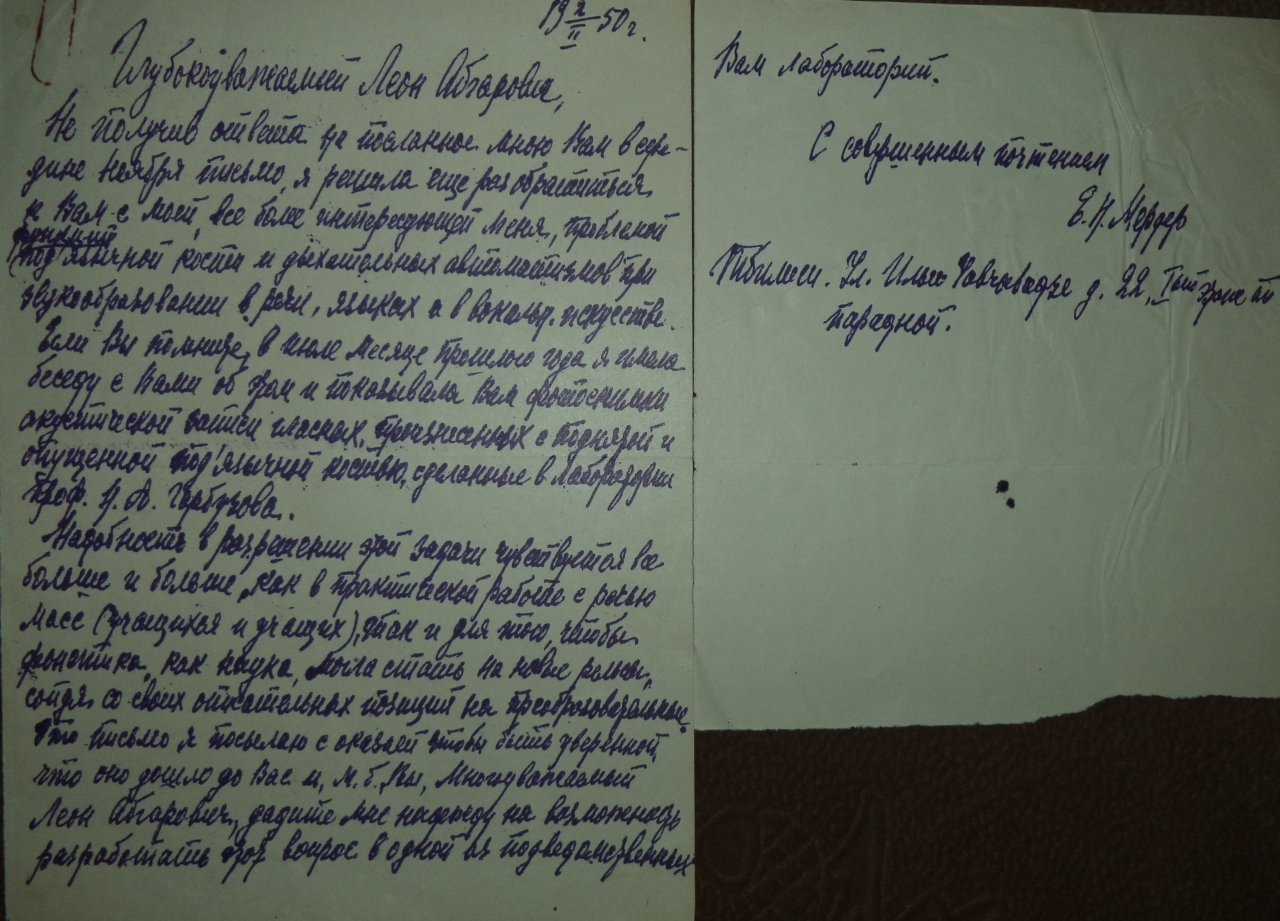 19 2/II 50 г.
Глубокоуважаемый Леон Абгарович,
Не получив ответа на посланное мною Вам в сере-
дине ноября письмо, я решила еще раз обратиться
к Вам с моей, все более интересующей меня, проблемой
функций
под'язычной кости и дыхательных автоматизмов при
звукообразовании в речи, языках и в вокальн. искусстве.
Если Вы помните, в июле месяце прошлого года я имела
беседу с Вами об этом и показывала Вам фотоснимки
акустической записи гласных, произнесенных с поднятой и
опущенной под'язычной костью, сделанные в лаборатории
проф. Н. А. Гарбузова.
Надобность в разрешении этой задачи чувствуется все
больше и больше, как в практической работе с речью
масс (учащихся и учащих), так и для того, чтобы
фонетика, как наука, могла стать на новые рельсы,
сойдя со своих описательных позиций на преобразовательные.
Это письмо я посылаю с оказией чтобы быть уверенной,
что оно дошло до Вас и, м. б. Вы, Многоуважаемый
Леон Абгарович, дадите мне надежду на возможность
разработать этот вопрос в одной из подведомственных
Вам лабораторий.
С совершенным почтением
Е. Н. Мердер
Тбилиси. Ул. Ильи Чавчавадзе д. 22, I этаж от
парадной.